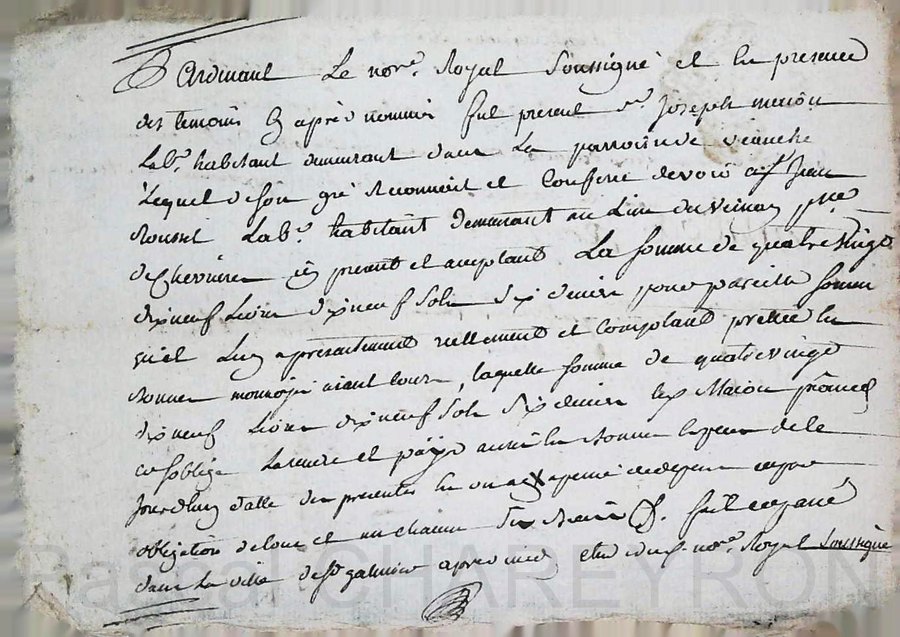 Pardevant Le nore. Royal Soussigné et En presence
des temoins Cy après nommés fut present sr. Joseph
Labr. habitant demeurant dans La parroisse de veauche
Lequel de son gré Reconnoit et Confesse devoir a sr Jean
Rousset Labr. habitant demeurant au Lieu du vernay psse
de Chevrieres Cy present et acceptant La somme de quatre vingt
dix neuf Livres dix neuf sols six deniers pour pareille somme
qu'il Luy a presentement reellement et Comptant prettée En
bonne monnoye aiant Cours, laquelle somme de quatre vingt
dix neuf Livres dix neuf sols six deniers Led
s'oblige rendre et payer En
Jourdhuy datte des presentes En un an a peine
obligations de tout et un chacun ses biens &. fait et passé
dans La ville de st galmier apres midy nore. Royal Soussigné
Pascal CHAREYRON